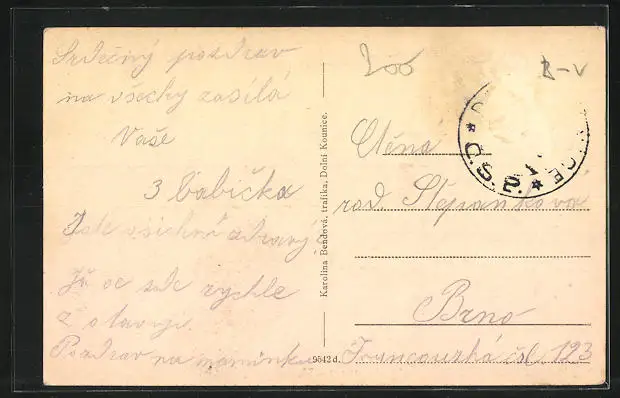 Srdečný pozdrav
na všecky zasílá
Vaše
Babička
Jste všichni zdravý
Já se zde rychle
Pozdrav na maminku
Karolina Bendová, trafika, Dolní Kounice.
9542 d.
200
B-V
* Č.S.P. *
ICE
Ctěna
rod. Štěpankova
Brno
Francouzská čsl. 123